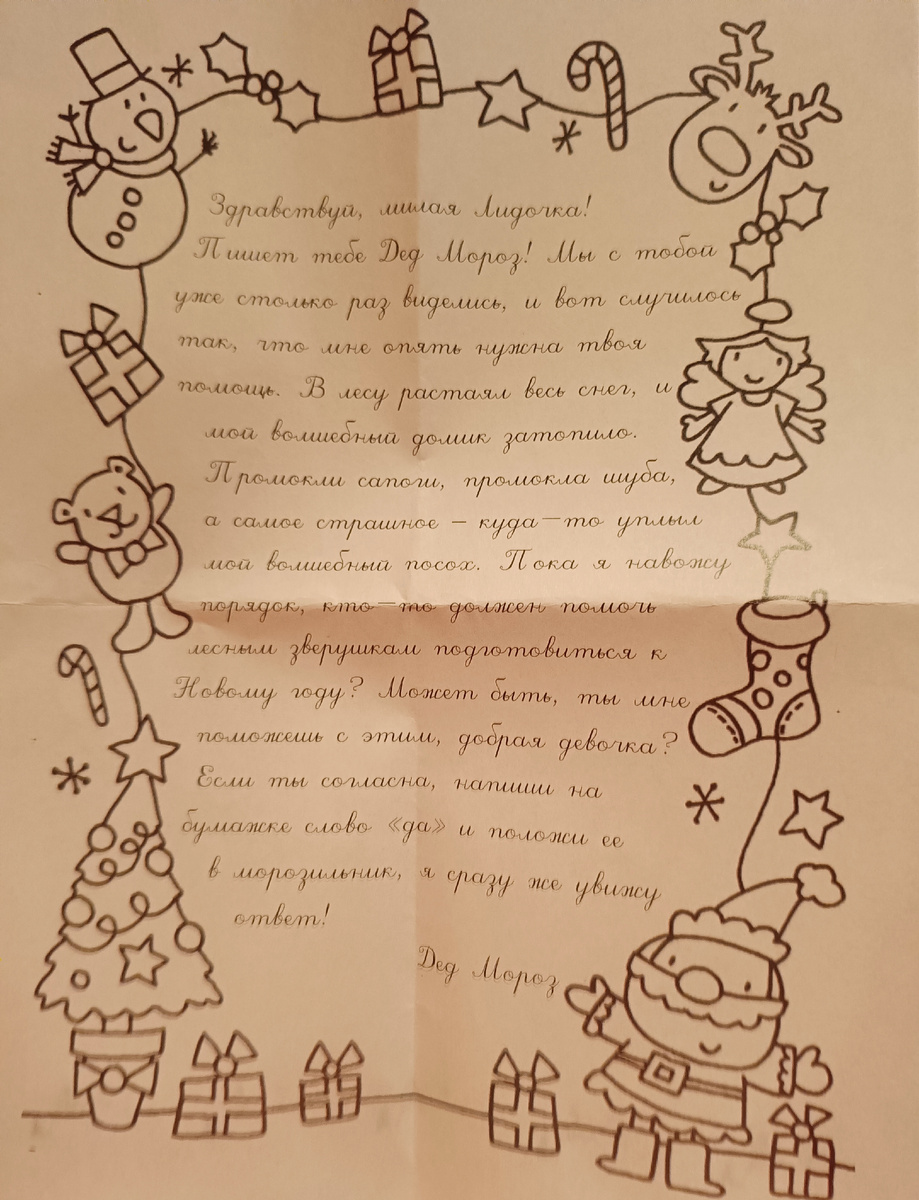 Здравствуй, милая Лидочка!
Пишет тебе Дед Мороз! Мы с тобой
уже столько раз виделись, и вот случилось
так, что мне опять нужна твоя
помощь. В лесу растаял весь снег, и
мой волшебный домик затопило.
Промокли сапоги, промокла шуба,
а самое страшное – куда–то уплыл
мой волшебный посох. Пока я навожу
порядок, кто–то должен помочь
лесным зверушкам подготовиться к
Новому году? Может быть, ты мне
поможешь с этим, добрая девочка?
Если ты согласна, напиши на
бумажке слово «да» и положи ее
в морозильник, я сразу же увижу
ответ!
Дед Мороз